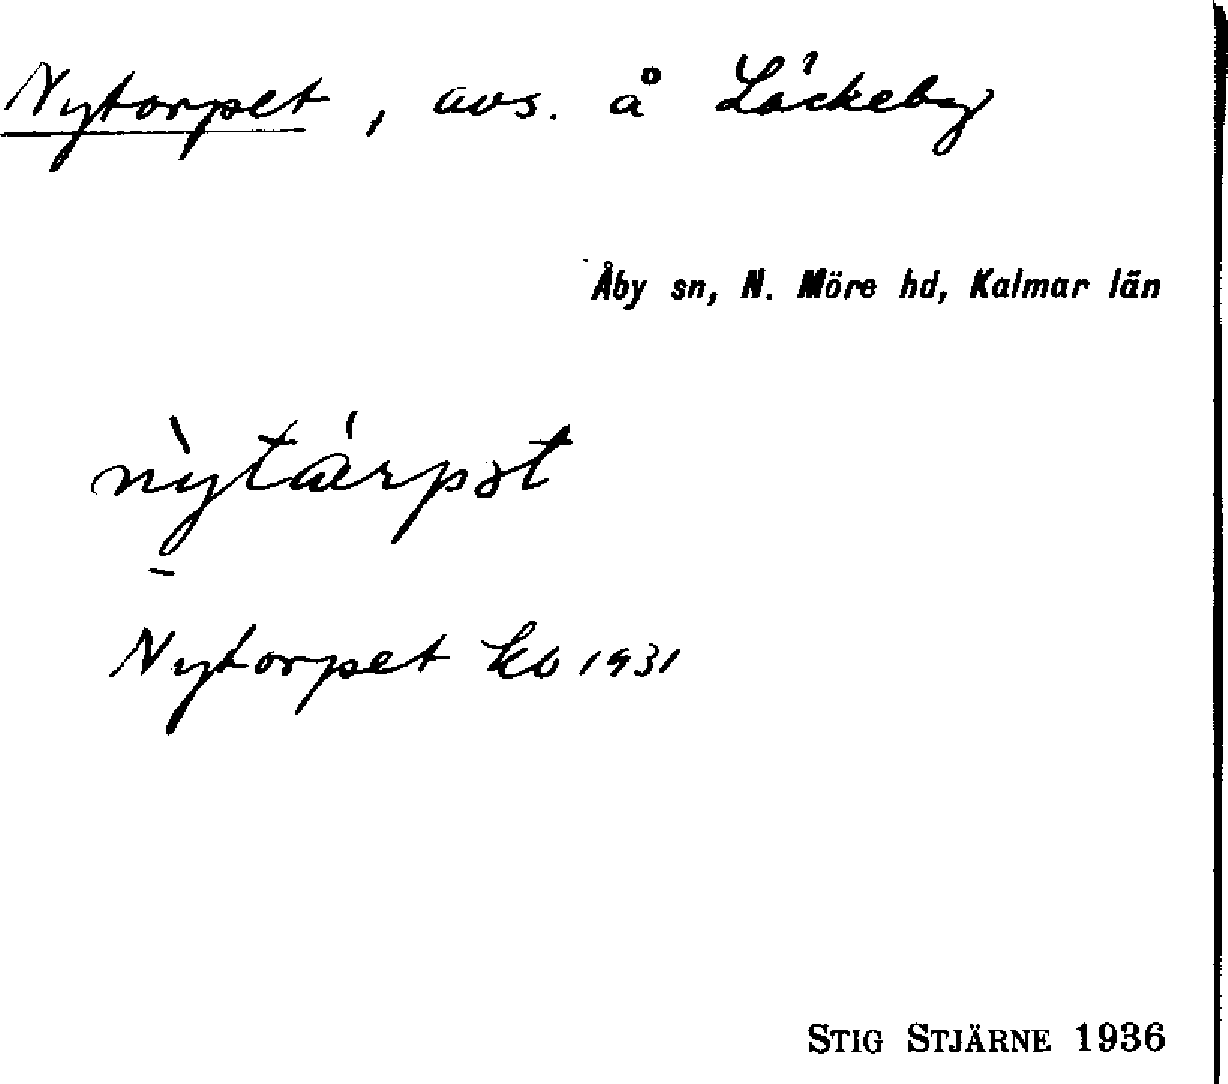 Nytorpet, avs. å Läckeby
Åby sn, N. Möre hd, Kalmar län
Nytorpet kb 1931
STIG STJÄRNE 1936